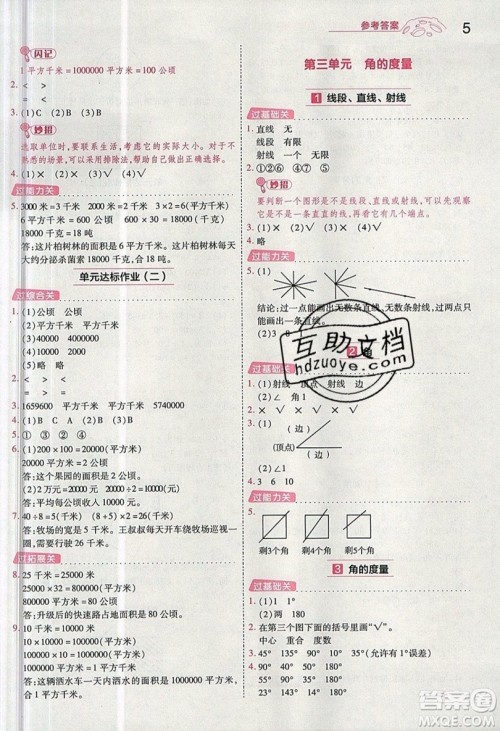 参考答案
5
闪记
1 平方千米=1000000 平方米=100 公顷
2. < > <
> < =
3. (1)C (2)B (3)B
妙招
选取单位时,要联系生活,考虑实际大小。对于不
熟悉的场所,可以采用排除法,帮助我们判断。
4. (1)× (2)× (3)√ (4)√
过能力关
5. 3000 米=3 千米 2000 米=2 千米 3×2=6(平方千米)
6 平方千米=600 公顷 600×30=18000(千克)
18000 千克=18 吨
答:这片柏树林的面积是 6 平方千米。这片柏树林每天
大约分泌杀菌素 18000 千克,合 18 吨。
单元达标作业(二)
过综合关
1. (1)公顷 公顷
(2)平方千米 平方千米
(3)平方米
(4)平方千米
(5)略 略
2. < = >
< = <
3. 1659600 平方千米 平方千米 5740000
4. (1)B C A (2)B (3)B
5. ① ③ ② ④
6. (1)200×100=20000(平方米)
20000 平方米=2 公顷
答:这个果园的面积是 2 公顷。
(2)2 万元=20000 元 20000×2=40000(元)
答:果园一年一共收入 40000 元。
7. 40÷8=5(千米) (40+5)×2=90(千米)
答:牧场的宽是 5 千米。王叔叔每天开车绕牧场巡视一
圈,他每天开车要行驶 90 千米。
过拓展关
8. 25 千米=25000 米
25000×40=1000000(平方米)
1000000 平方米=1 平方千米
答:升级后的快速路占地面积是 1 平方千米。
9. 10 千米=10000 米
10×10000=100000(平方米)
100000×10=1000000(平方米)
1000000 平方米=1 平方千米
答:这辆洒水车一天内洒水的面积是 1000000 平方米,
合 1 平方千米。
第三单元 角的度量
1 线段、直线、射线
过基础关
1. 直线 无
线段 有限
射线 一个 无限
2. ①②⑥
妙招
要判断一个图形是不是线段,可以先观察
它是不是直的,再看它有没有两个端点。
3. (1)× (2)√ (3)√ (4)×
4. 略
过能力关
5. (1)
结论:过一点能画出无数条直线、无数条射线,过两点只
能画出一条直线。
2 角
过基础关
1. (1)射线 顶点 射线 边
(2)∠ 角1
2. × √ × √ √
3. (1) (边)
(顶点)
(边)
过能力关
5.
剩3个角 剩4个角 剩5个角
3 角的度量
过基础关
1. (1)1 1°
(2)两 180
2. 在第三个图下面的括号里画“√”。
中心 重合 度数
4. 45° 135° 90° 65°(允许有 1°误差)